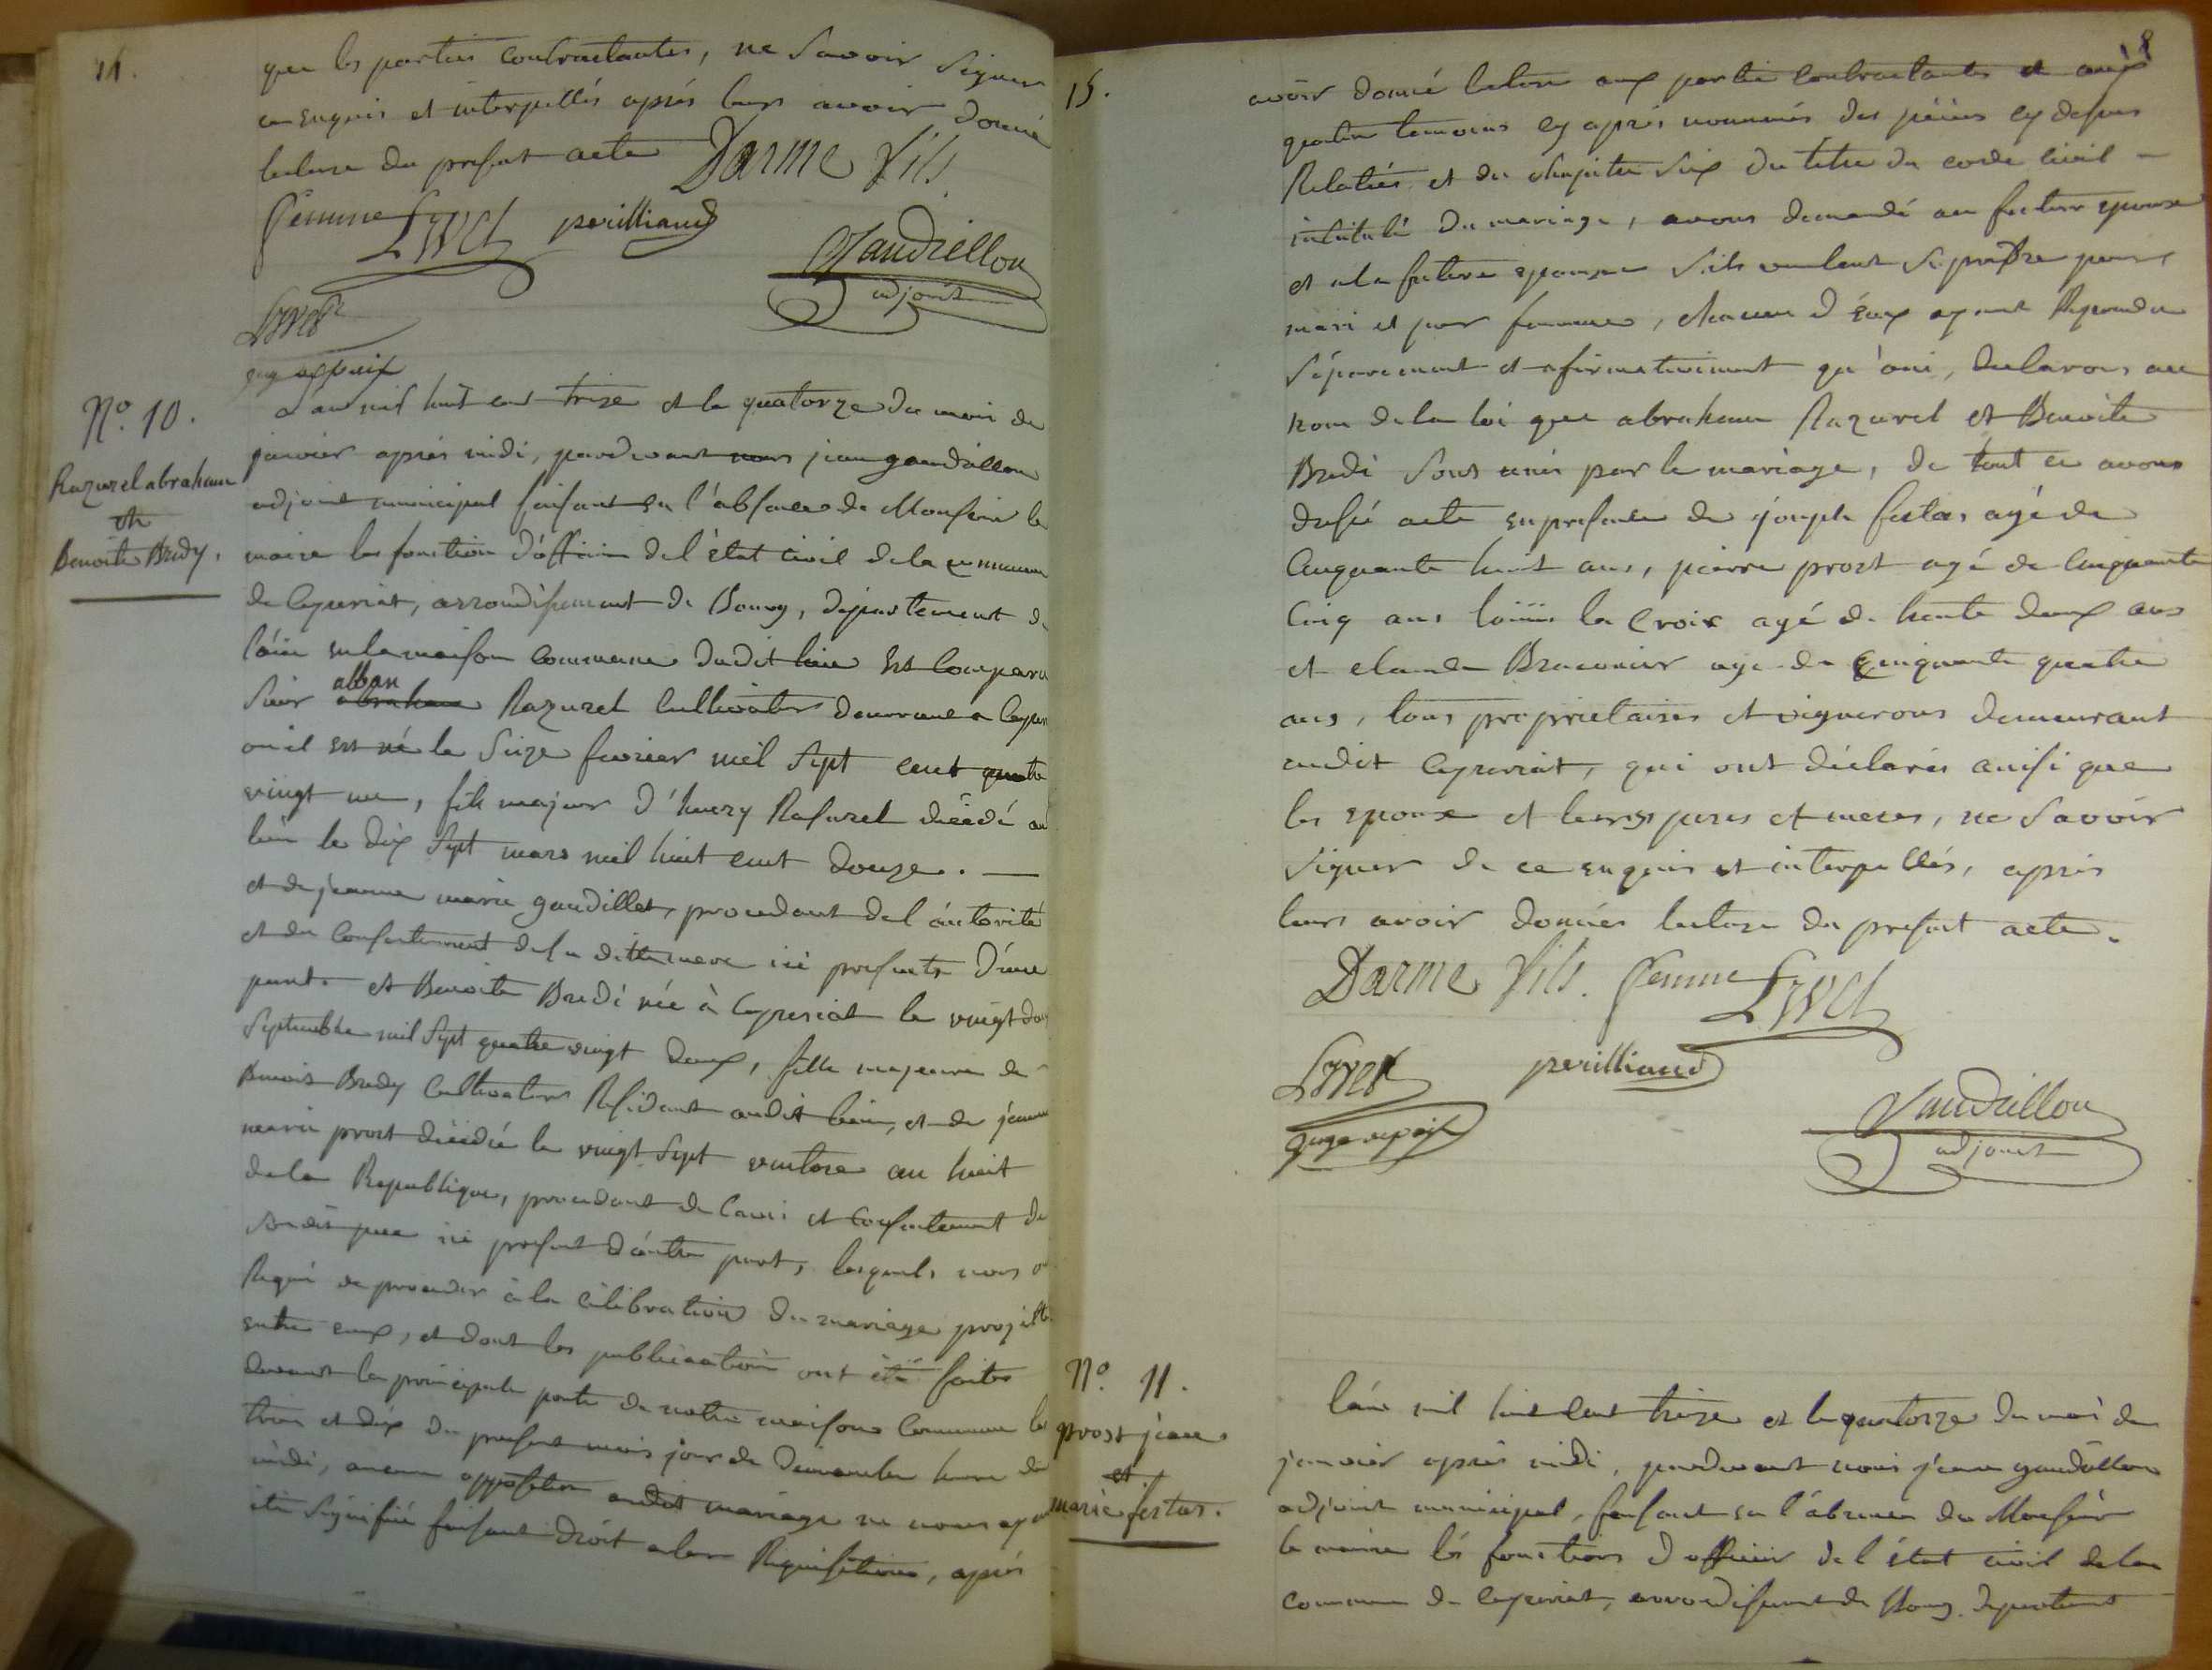 14.
que les parties contractantes, ne savoir signer
ce enquis et interpellés après leurs avoir donné
lecture du present acte Darme fils
femme Lyvet perilliaud
Gaudillon
adjoint
Lyvet
N.º 10.
Razurel abraham
et
Benoite Bredy.
L'an mil huit cent treize et le quatorze du mois de
janvier après midi, pardevant nous jean gaudillon
adjoint municipal faisant en l'absence de Monsieur le
maire les fonction d'officier de l'état civil de la commune
de Ceyseriat, arrondissement de Bourg, departement de
l'ain en la maison commune dudit lieu est comparu
sieur alban abraham Razurel Cultivateur demeurant a Ceyser
ou il est né le seize fevrier mil sept cent quatre
vingt un, fils majeur d'henry Rasurel décédé au
lieu le dix sept mars mil huit cent douze. —
et de jeanne marie gaudillet, procedant de l'autorité
et du consentement de la ditte mere ici presente d'une
part. et Benoite Bredi née à Ceyseriat le vingt deux
septembre mil sept quatre vingt deux, fille majeure de
Benoit Bredy Cultivateur Residant audit lieu, et de jeanne
marie prost décédée le vingt sept ventose an huit
de la Republique, procedant de l'avis et consentement du
sus dit pere ici present d'autre part, lesquels nous on
Requi de proceder à la célébration du mariage projetté
entre eux, et dont les publication ont été faites
devant la principale porte de notre maison Commune les
trois et dix du present mois jour de Dimanche heure de
midi, aucune opposition audit mariage ne nous ayant
été signifiée faisant droit a leur Requisition, après
8
15.
avoir donné lecture aux partie contractantes et aux
quatre temoins cy après nommés des pièces cy dessus
Relatées et du chapitre six du titre du code civil —
intitulé du mariage, avons demandé au futur epoux
et a la future epouse s'ils veulent se prendre pour
mari et pour femme, chacun d'eux ayant Repondu
séparement et afirmativement qu'oui, declarons au
nom de la loi que abraham Razurel et Benoite
Bredi sont unis par le mariage, de tout ce avons
dressé acte en presence de joseph festas agé de
Cinquante huit ans, pierre prost agé de Cinquante
Cinq ans louis la Croix agé de trente deux ans
et claude Braconier age de Cinquante quatre
ans, tous proprietaires et vignerons demeurant
audit Ceyseriat, qui ont déclarés ainsi que
les epoux et leurs peres et meres, ne savoir
signer de ce enquis et interpellés, après
leurs avoir donnés lecture du present acte.
Darme fils. femme Lyvet
Lyvet perilliaud
Gaudillon
adjoint
N.º 11.
prost jean
et
marie festas.
L'an mil huit cent treize et le quatorze du mois de
janvier après midi, pardevant nous jean gaudillon
adjoint municipal, faisant en l'absence de Monsieur
le maire lés fonctions d'officier de l'état civil de la
commune de Ceyseriat, arrondissement de Bourg, departement